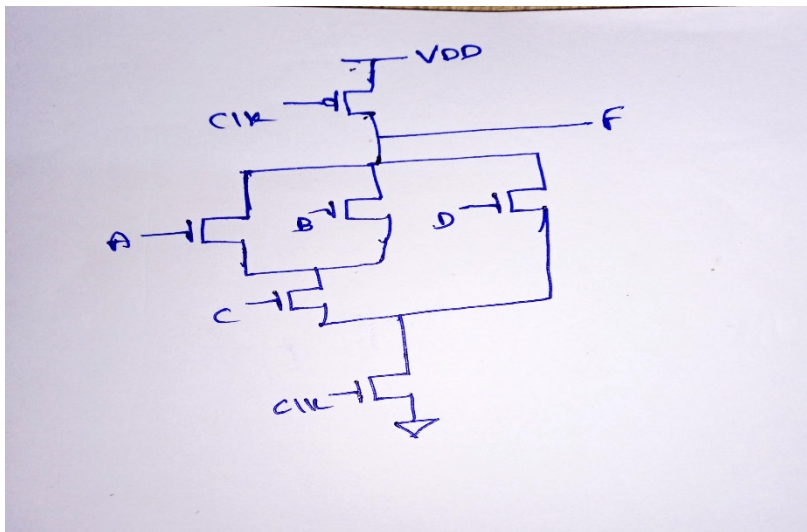 VDD
Clk
F
A
B
D
C
Clk